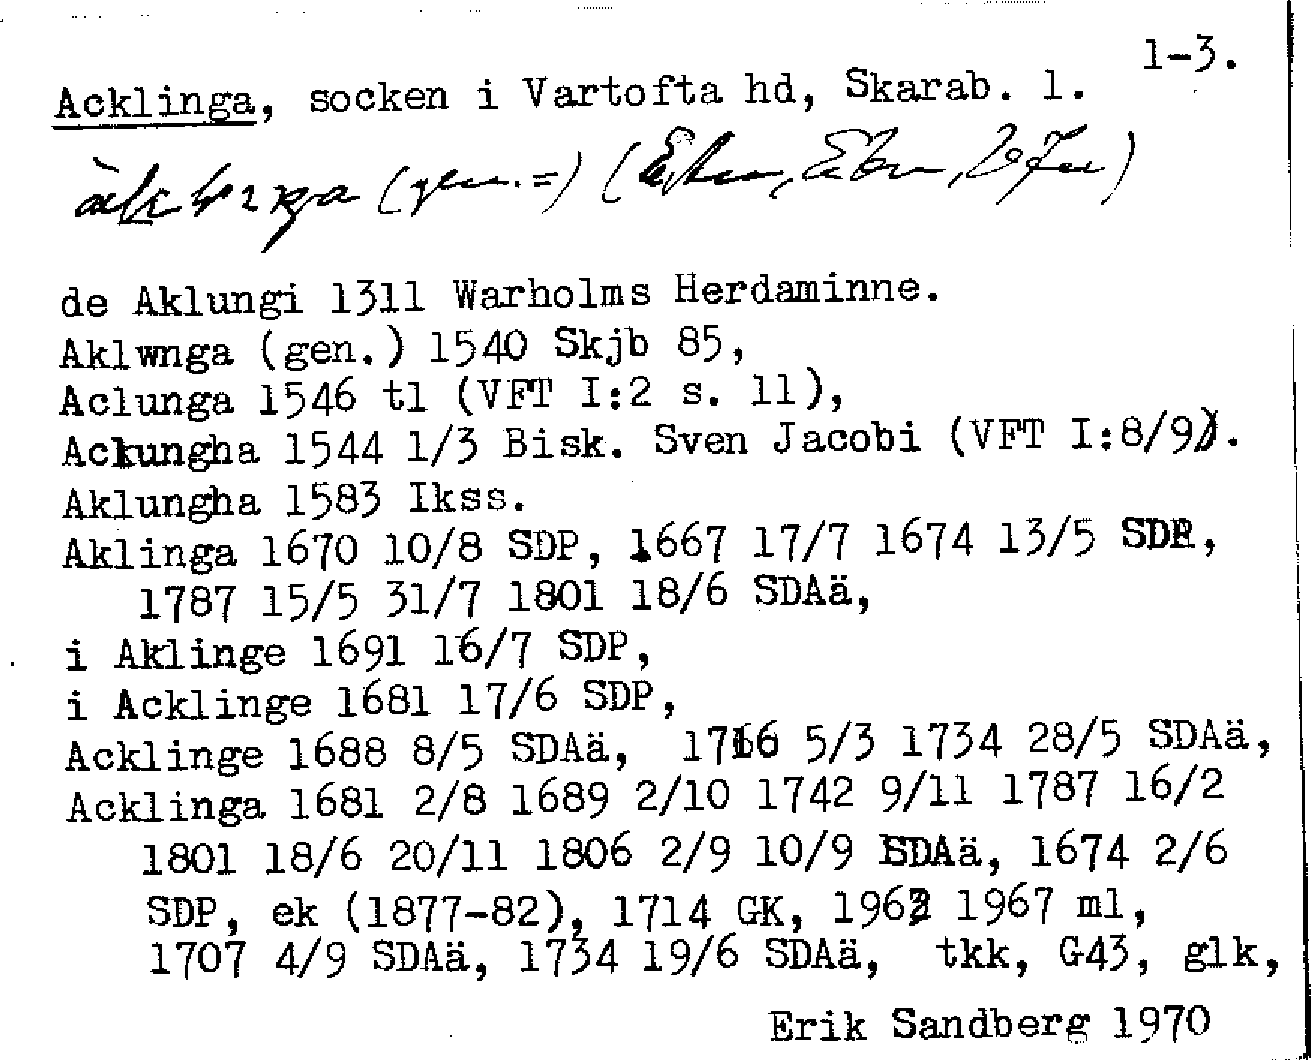 1-3.
Acklinga, socken i Vartofta hd, Skarab. l.
(gen. =)
de Aklungi 1311 Warholms Herdaminne.
Aklwnga (gen.) 1540 Skjb 85,
Aclunga 1546 tl (VFT I:2 s. 11),
Ackungha 1544 1/3 Bisk. Sven Jacobi (VFT I:8/9).
Aklungha 1583 Ikss.
Aklinga 1670 10/8 SDP, 1667 17/7 1674 13/5 SDP,
1787 15/5 31/7 1801 18/6 SDAä,
i Aklinge 1691 16/7 SDP,
i Acklinge 1681 17/6 SDP,
Acklinge 1688 8/5 SDAä, 1716 5/3 1734 28/5 SDAä,
Acklinga 1681 2/8 1689 2/10 1742 9/11 1787 16/2
1801 18/6 20/11 1806 2/9 10/9 SDAä, 1674 2/6
SDP, ek (1877-82), 1714 GK, 1962 1967 ml,
1707 4/9 SDAä, 1734 19/6 SDAä, tkk, G43, glk,
Erik Sandberg 1970